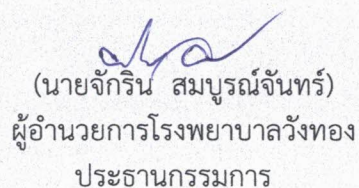 (นายจักริน สมบูรณ์จันทร์)
ผู้อำนวยการโรงพยาบาลวังทอง
ประธานกรรมการ